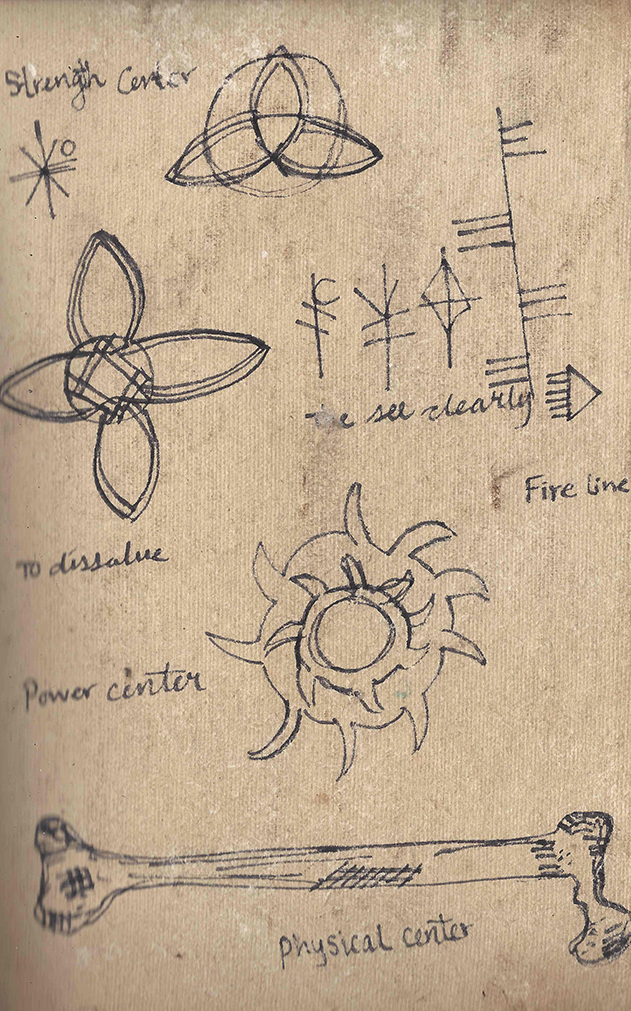 Strength Center
see clearly
Fire line
To dissalue
Power center
physical center